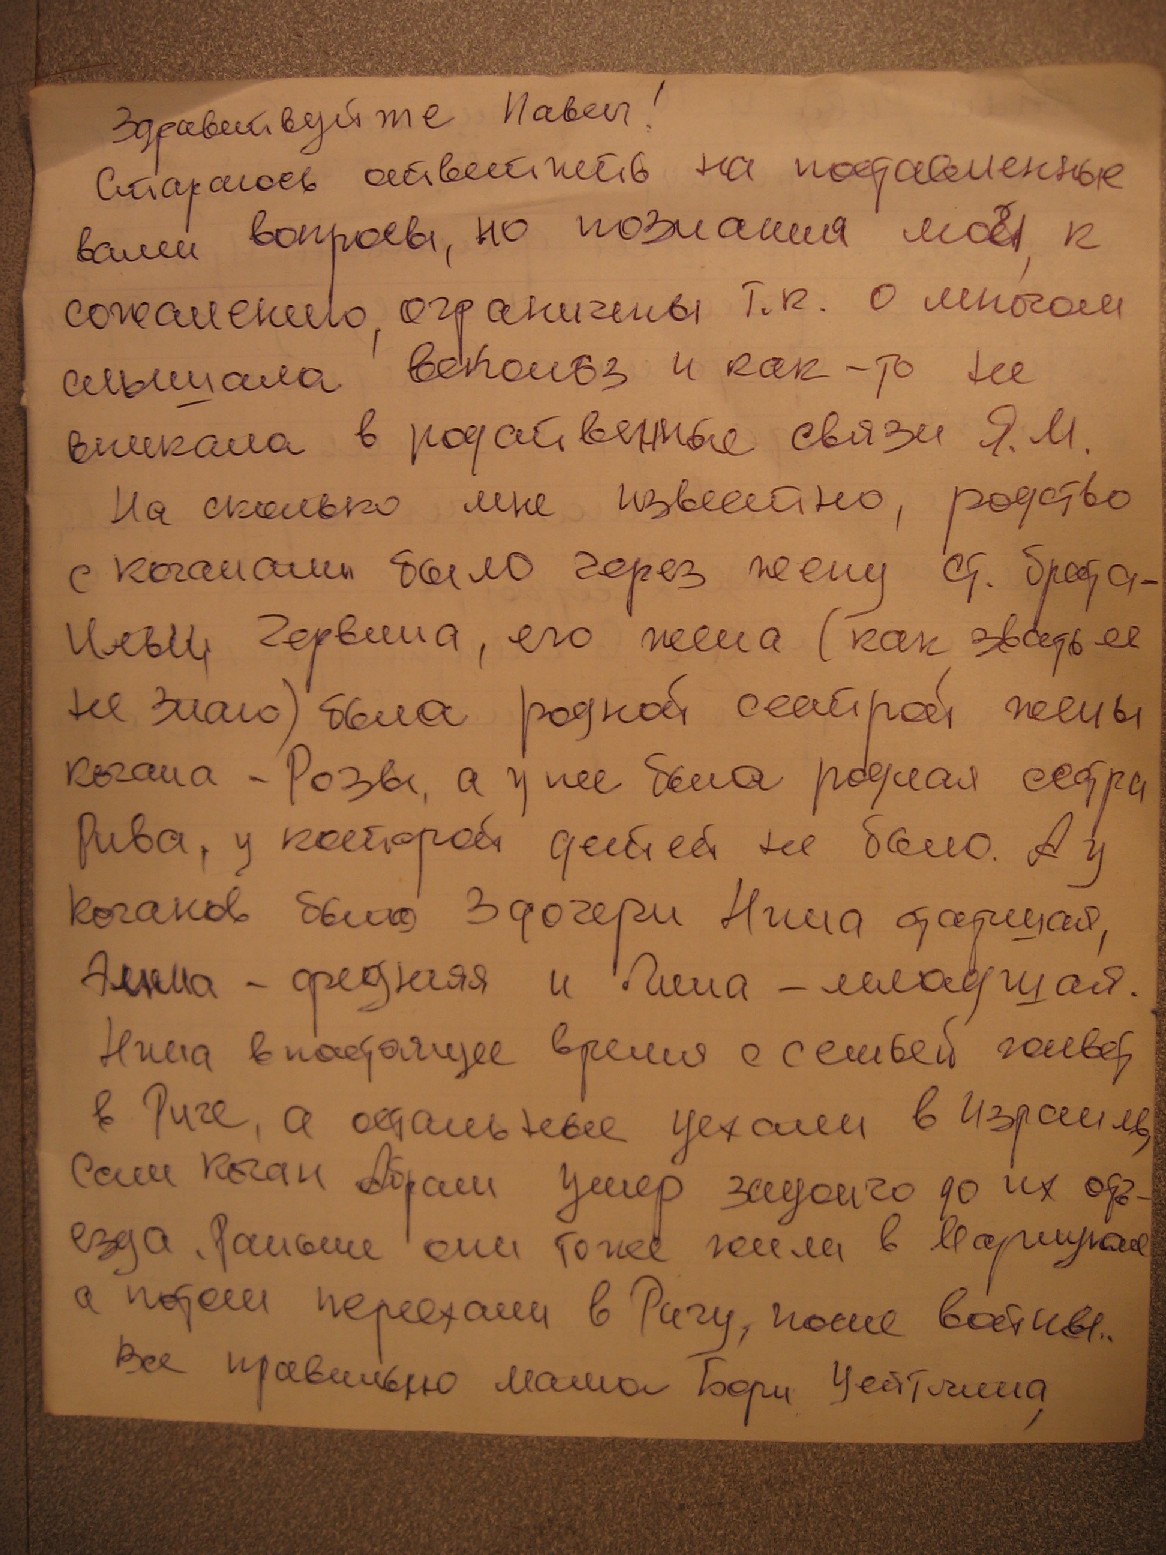 Здравствуйте Павел!
Стараюсь ответить на поставленные
вами вопросы, но познания мои, к
сожалению, ограничены т.к. о многом
слышала вскользь и как-то не
вникала в родственные связи Я.М.
На сколько мне известно, родство
с Коганами было через жену ст. брата-
Ильи Червина, его жена (как звать ее
не знаю) была родной сестрой жены
Когана - Розы, а у нее была родная сестра
Рива, у которой детей не было. А у
Коганов было 3 дочери Нина старшая,
Анна - средняя и Лина - младшая.
Нина в настоящее время с семьей живет
в Риге, а остальные уехали в Израиль,
Сам Коган Абрам умер задолго до их отъ-
езда. Раньше они тоже жили в
а потом переехали в Ригу, после войны..
Все правильно мама Бори Цейтлина,